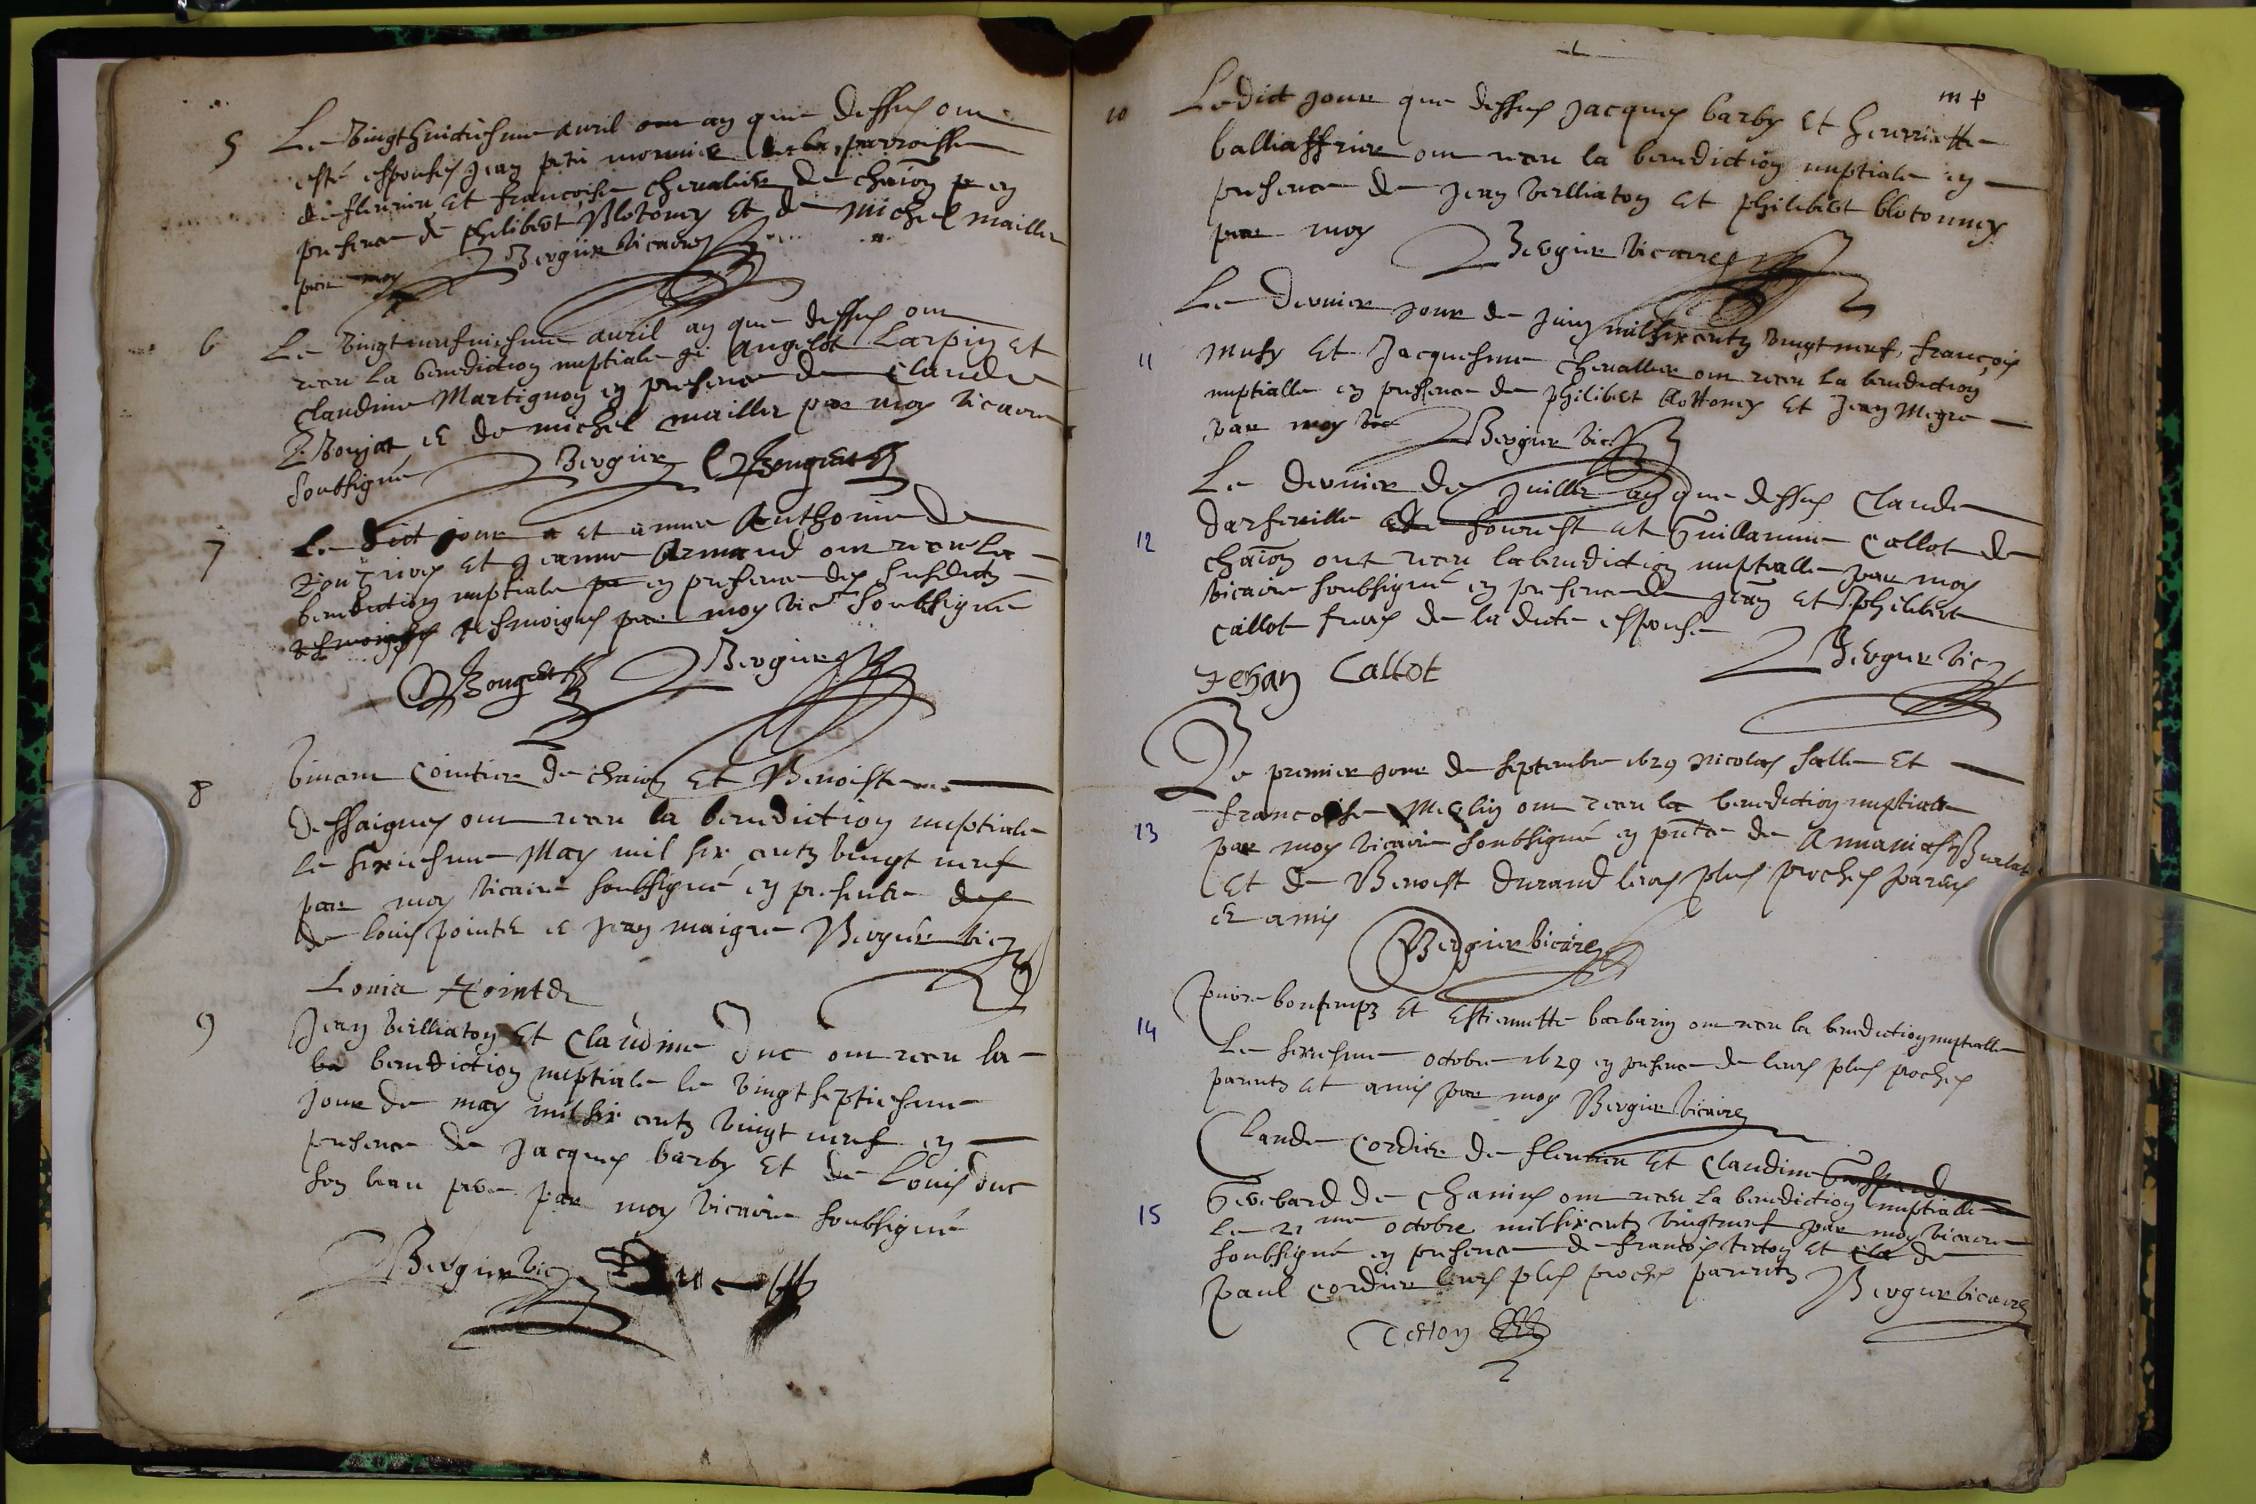 5
Le vingthuictiesme avril an que dessus ont
esté espousés Jean petit mounier de la parroisse
de fleurieu Et francoise chevalier de chaion en
presence de philibert Blotoney Et de Michel mailler
par moy Bergier vicaire
6
Le vingtneufviesme avril an que dessus ont
receu la benediction nuptiale Angelot Larpin Et
claudine Martignon en presence de Claude
Bonjat et de michel mailler par moy vicaire
soubsigné Bergier
7
Le dict jour Et annee Anthoine de
Et Jeanne Armand ont receu la
benediction nuptiale en presence des susdicts
tesmoignes par moy vic soubsigné
Bergier
8
vincent Cointier de chaion Et Benoiste
dessaignes ont receu la benediction nuptiale
le sixiesme May mil six cents vingt neuf
par moy vicaire soubsigné en presence des
de louis pointet et Jean maigre Bergier vic
Louis Pointet
9
Jean verlliaton Et Claudine Duc ont receu la
la benediction nuptiale le vingtseptiesme
jour de may mil six cents vingt neuf en
presence de Jacques barby Et de Louis duc
son beau pere par moy vicaire soubsigné
Bergier vic Duc
m
10
Ledict jour que dessus Jacques barby Et henriette
balliaffriere ont receu la benediction nuptiale en
presence de Jean verlliaton Et philibert blotonney
par moy Bergier vicaire
11
Le dernier jour de juin mil six cents vingt neuf, françois
musy Et Jacquesme chevallier ont receu la benediction
nuptialle en presence de philibert blottoney Et Jean Megre
par moy vic Bergier vic
12
Le dernier de juillet an que dessus Claude
darfeuille fourest et Guillaumine Callot de
chaion ont receu la benediction nuptialle par moy
vicaire soubsigné en presence de Jean Et Philibert
callot freres de la dicte espouse
Bergier vic
Jehan Callot
13
Le premier jour de septembre 1629 Nicolas salle Et
francoise Meslin ont receu la benediction nuptialle
par moy vicaire soubsigné en pnce de Burlat
Et de Benoist durand leurs plus proches parens
et amis
Bergier vicaire
14
pierre bontemps Et Estiennette barbarin ont receu la benediction nuptialle
Le seziesme octobre 1629 en presence de leurs plus proches
parents et amis par moy Bergier vicaire
15
Claude Cordier de fleurieu Et Claudine
Gerbard de Chanins ont receu La benediction nuptialle
le 21 me octobre mil six cents vingtneuf par moy vicaire
soubsigné en presence de francois terton Et de
paul Cordier leurs plus proches parents Bergier vicaire
Terton